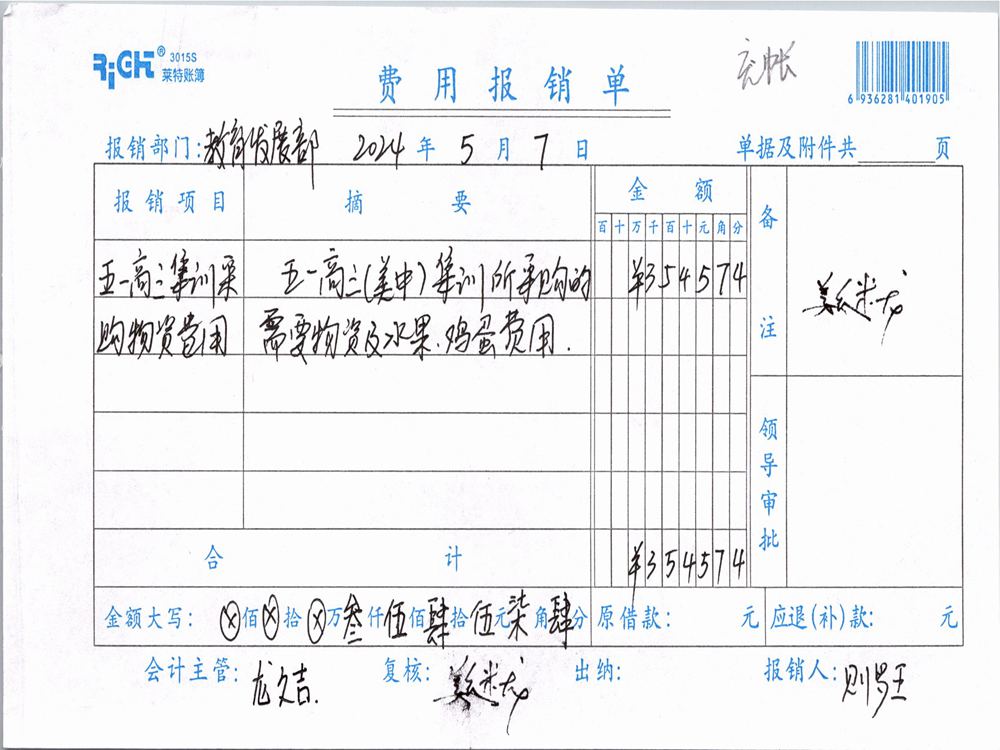 RiGHT® 3015S
莱特账簿
费用报销单
充帐
6 936281 401905
报销部门:教育发展部 2024年5月7日 单据及附件共 页
报销项目 摘要 金额 备注
百十万千百十元角分
五一高三集训采 五一高三(美中)集训所采购的 ¥354574
购物资费用 需要物资及水果、鸡蛋费用.
领导审批
合计 ¥354574
金额大写: ⊗佰⊗拾⊗万叁仟伍佰肆拾伍元柒角肆分 原借款: 元 应退(补)款: 元
会计主管: 龙久吉. 复核: 出纳: 报销人: